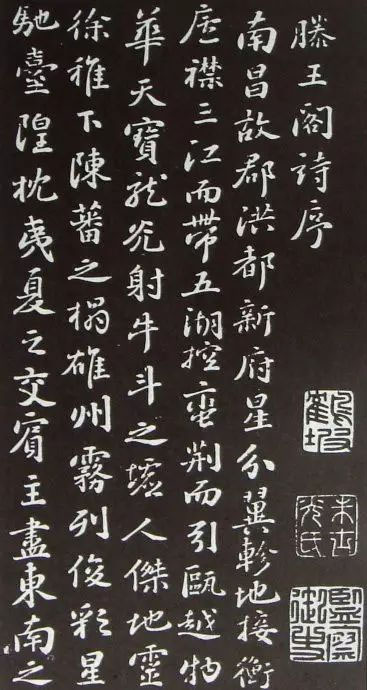 滕王閣詩序
南昌故郡洪都新府星分翼軫地接衡
庐襟三江而帶五湖控蛮荊而引甌越物
華天寶龍光射牛斗之墟人傑地靈
徐稚下陳蕃之榻雄州霧列俊彩星
馳臺隍枕夷夏之交賓主盡東南之